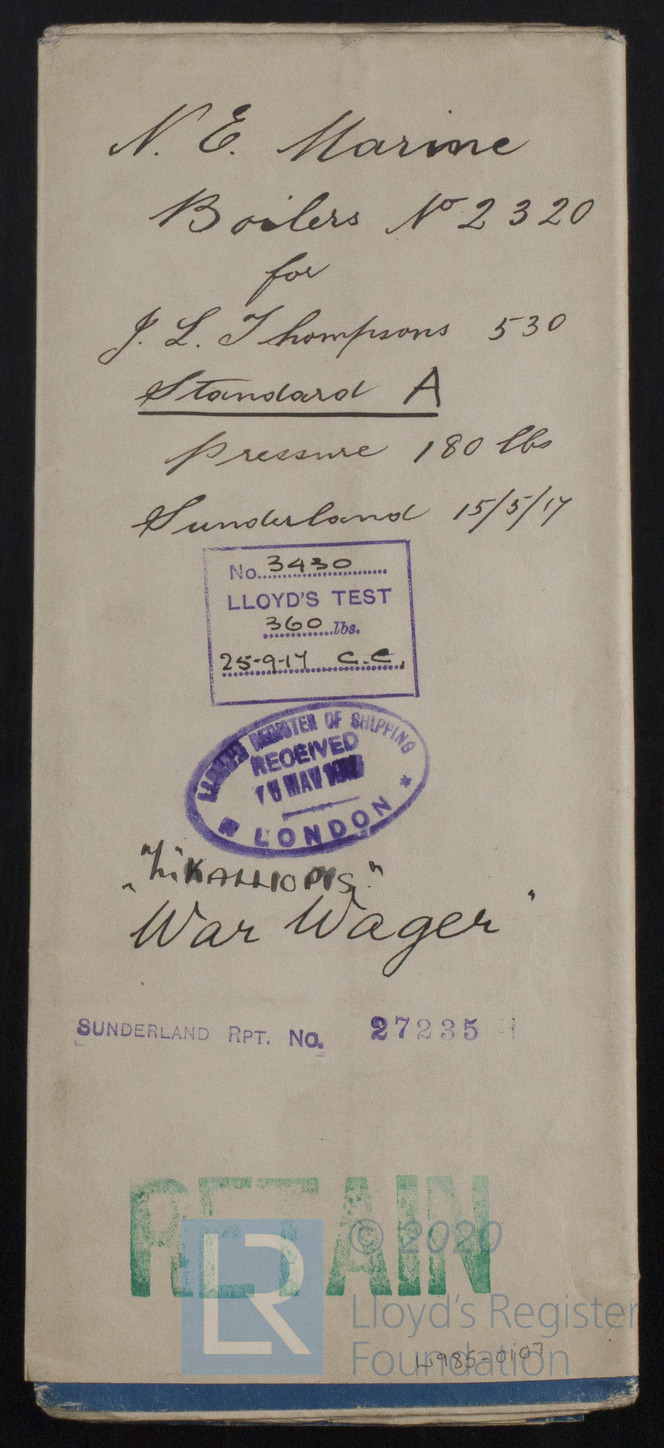 N. E. Marine
Boilers No 2320
for
J. L. Thompsons 530
Standard A
pressure 180 lbs
Sunderland 15/5/17
No. 3430
LLOYD'S TEST
360 lbs.
25-9-17 C.C.
LLOYD'S REGISTER OF SHIPPING
RECEIVED
MAY
LONDON
"War Wager"
SUNDERLAND RPT. No. 27235
RETAIN
LR
© 2020
Lloyd's Register
Foundation
W985-0107